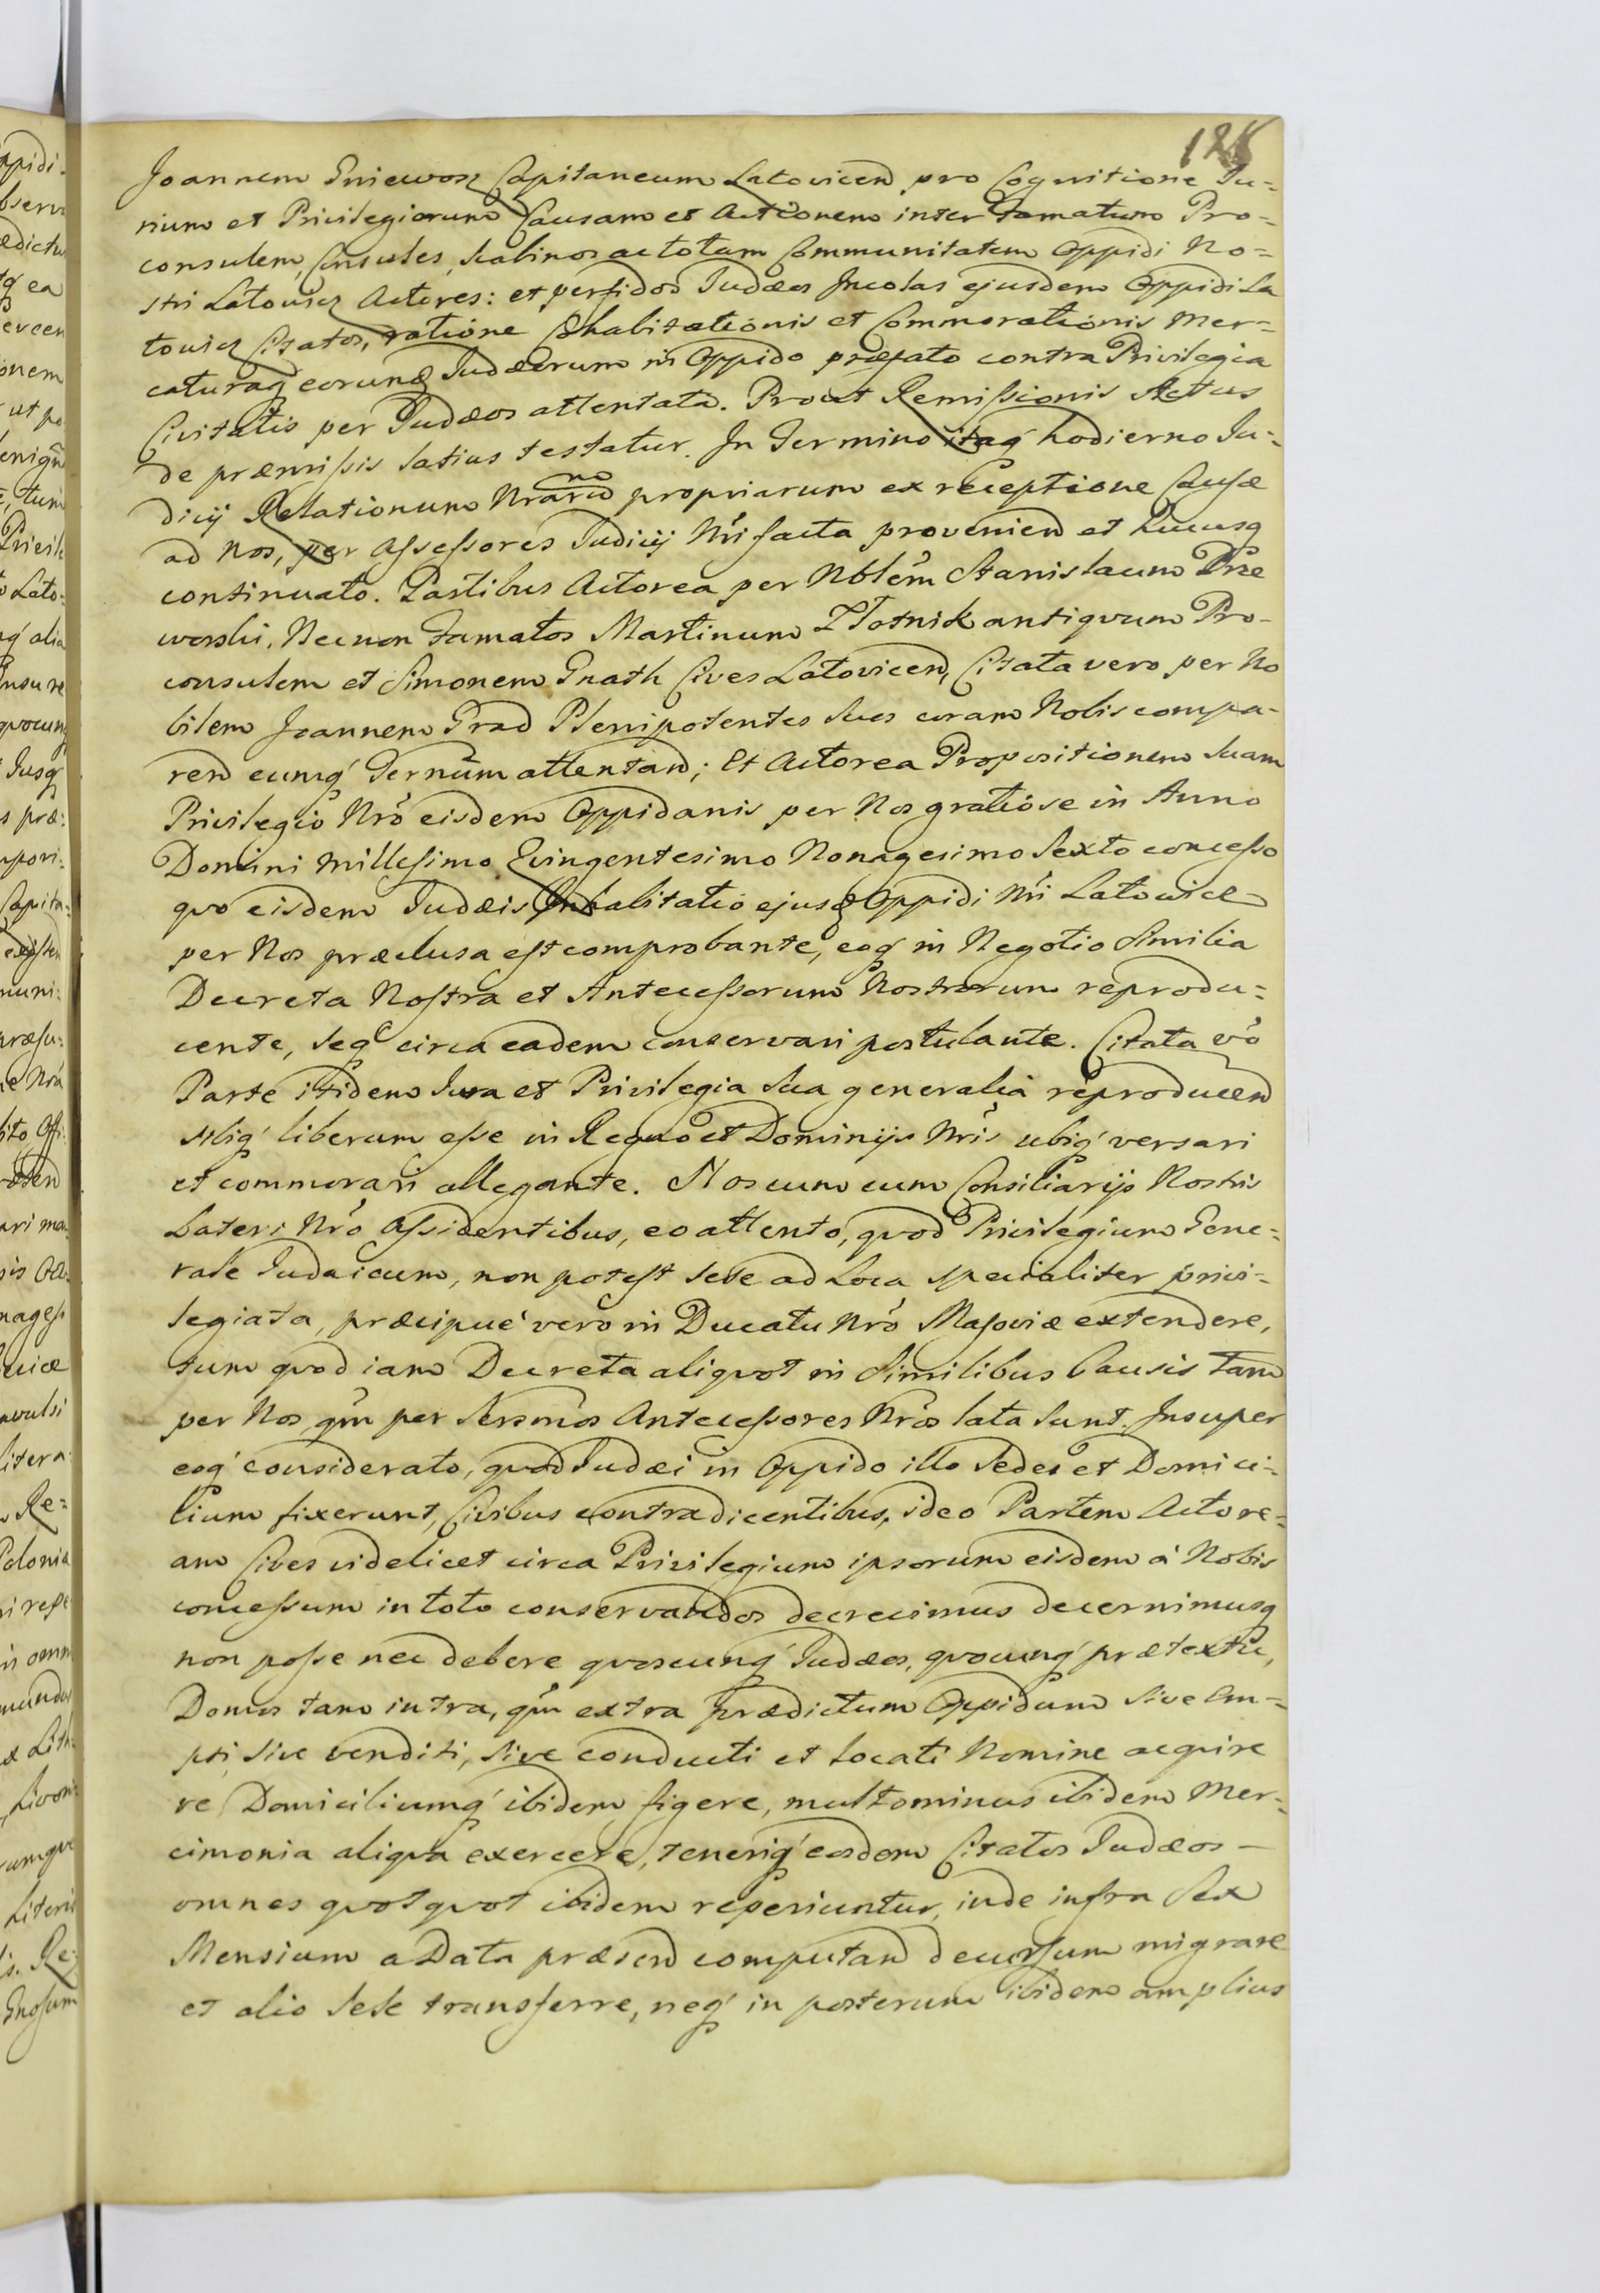 128
Joannem Gniewosz Capitaneum Latovicen pro Cognitione Ju=
rium et Privilegiorum Causam et Actionem inter Famatum Pro=
consulem, Consules, Scabinos ac totam Communitatem Oppidi No=
stri Latowicz Actores: et perfidos Judæos Incolas ejusdem Oppidi La
towicz Citatos, ratione Cohabitationis et Commorationis Mer=
caturaq́ eorunđ Judæorum in Oppido præfato contra Privilegia
Civitatis per Judæos attentata. Prout Remissionis Actus
de præmissis latius testatur. In Termino itaq́ hodierno Ju=
dicij Relationum Nrarū propriarum ex receptione Causæ
ad Nos, per Assessores Judicij Nri facta provenien et hucusq
continuato. Partibus Actorea per Nblem Stanislaum Prze
worski, Necnon Famatos Martinum Złotnik antiqvum Pro-
consulem et Simonem Gnath Cives Latovicen, Citata vero per No
bilem Joannem Grad Plenipotentes Suos coram Nobis compa-
ren eumq́ Ternum attentan; Et Actorea Propositionem Suam
Privilegio Nro eisdem Oppidanis per Nos gratiose in Anno
Domini Millesimo Qvingentesimo Nonagesimo Sexto concesso
qvo eisdem Judæis Inhabitatio ejusđ Oppidi Nri Latowice
per Nos præclusa est comprobante, eoq́ in Negotio Similia
Decreta Nostra et Antecessorum Nostrorum reprodu=
cente, Seq circa eadem conservari postulante. Citata vo
Parte itidem Jura et Privilegia Sua generalia reproducen
sibiq́ liberum esse in Regno et Dominijs Nris ubiq́ versari
et commorari allegante. Nos cum cum Consiliarijs Nostris
Lateri Nro Assidentibus, eo attento, qvod Privilegium Gene=
rale Judaicum, non potest Sese ad Loca specialiter privi=
legiata, præcipué vero in Ducatu Nro Masoviæ extendere,
tum qvod iam Decreta aliqvot in Similibus Causis tam
per Nos qm per Sersmos Antecessores Nros lata sunt. Insuper
eoq́ considerato, qvod Judæi in Oppido illo Sedes et Domici=
lium fixerunt, Civibus contradicentibus, ideo Partem Actore=
am Cives videlicet circa Privilegium ipsorum eisdem á Nobis
concessum in toto conservandos decrevimus decernimusq
non posse nec debere qvoscunq́ Judæos, qvocunq́ prætextu,
Domos tam intra, qm extra prædictum Oppidum sive Em=
pti, sive venditi, sive conducti et locati Nomine acqvire
re, Domiciliumq́ ibidem figere, multominus ibidem Mer=
cimonia aliqva exercere, teneriq́ eosdem Citatos Judæos
omnes qvotqvot ibidem reperiuntur, inde infra Sex
Mensium a Data præsen computan decursum migrare
et alio Sese transferre, neq́ in posterum ibidem amplius